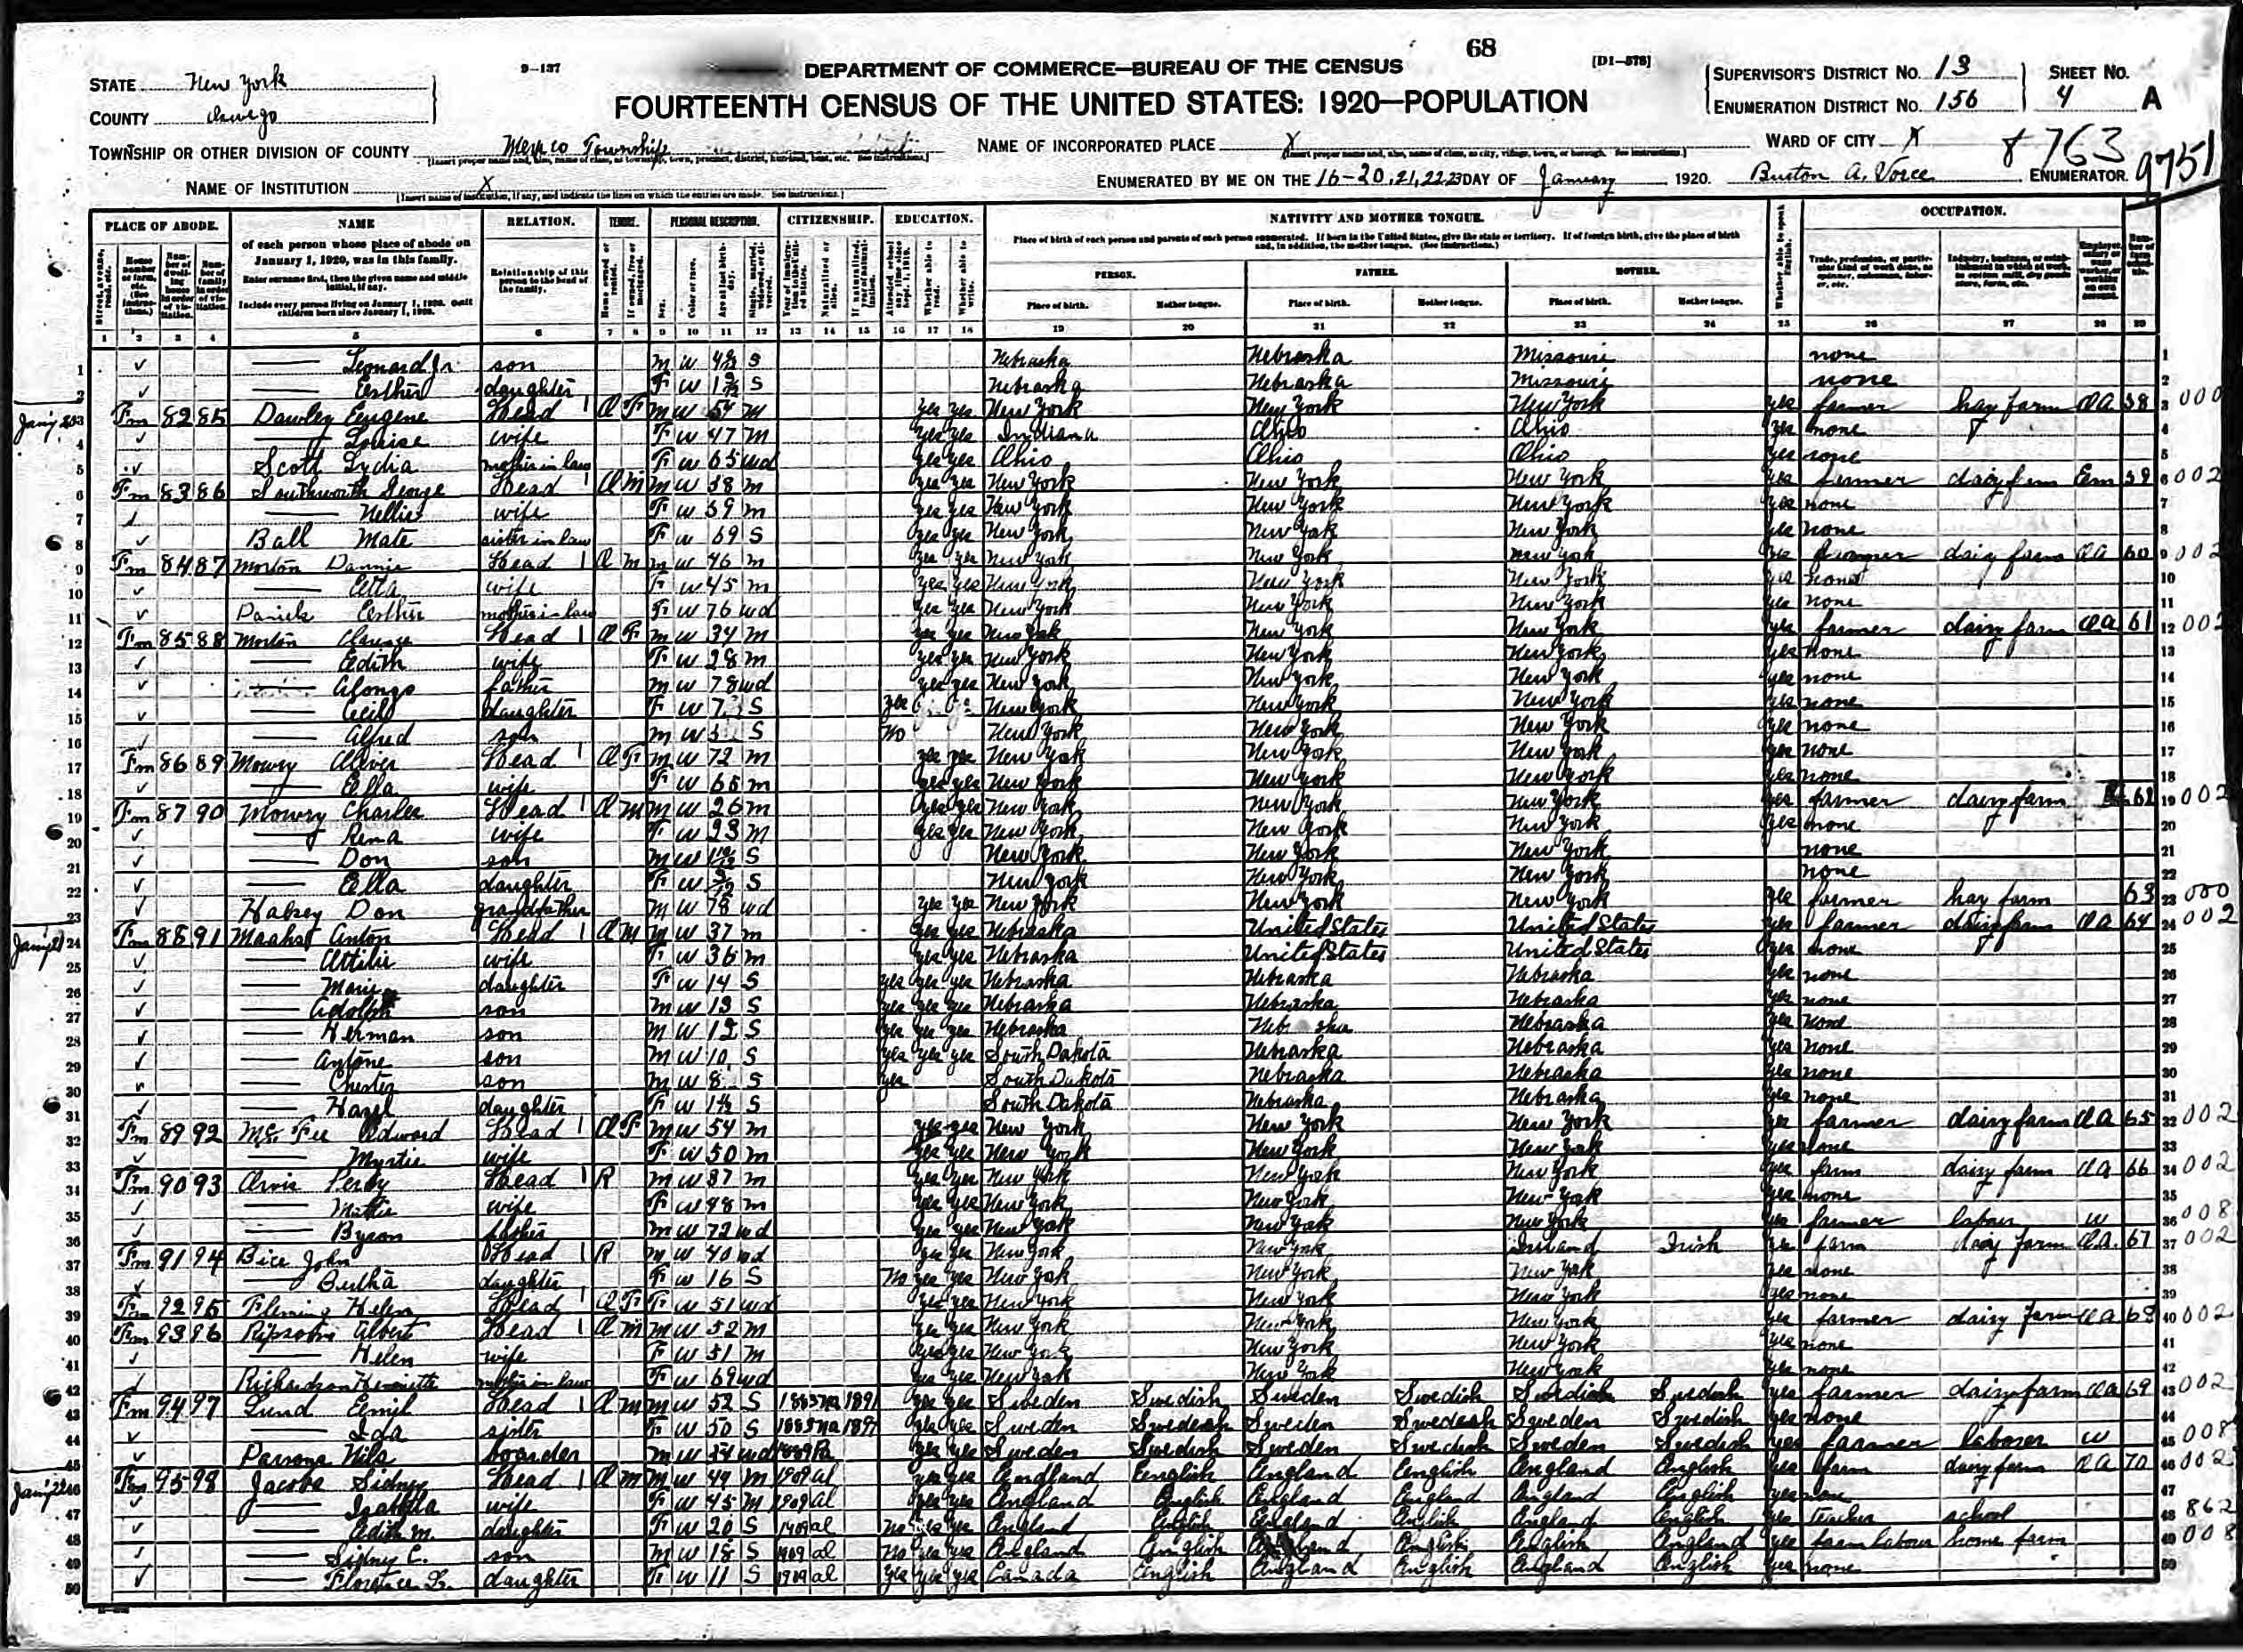 68
9-137
DEPARTMENT OF COMMERCE—BUREAU OF THE CENSUS
[D1-578]
FOURTEENTH CENSUS OF THE UNITED STATES: 1920—POPULATION
STATE New York
COUNTY Oswego
TOWNSHIP OR OTHER DIVISION OF COUNTY Mexico Township
NAME OF INCORPORATED PLACE X
NAME OF INSTITUTION X
ENUMERATED BY ME ON THE 16-20,21,22,23 DAY OF January 1920. Burton A. Voree ENUMERATOR.
SUPERVISOR'S DISTRICT No. 13
ENUMERATION DISTRICT No. 156
SHEET No. 4 A
WARD OF CITY X
8763
9751
PLACE OF ABODE. NAME RELATION. TENURE. PERSONAL DESCRIPTION. CITIZENSHIP. EDUCATION. NATIVITY AND MOTHER TONGUE. OCCUPATION.
of each person whose place of abode on January 1, 1920, was in this family.
Enter surname first, then the given name and middle initial, if any.
Include every person living on January 1, 1920. Omit children born since January 1, 1920.
Relationship of this person to the head of the family.
Place of birth of each person and parents of each person enumerated. If born in the United States, give the state or territory. If of foreign birth, give the place of birth and, in addition, the mother tongue. (See Instructions.)
PERSON. FATHER. MOTHER.
Place of birth. Mother tongue. Place of birth. Mother tongue. Place of birth. Mother tongue.
1 2 3 4 5 6 7 8 9 10 11 12 13 14 15 16 17 18 19 20 21 22 23 24 25 26 27 28 29
1 Leonard Jr son M W S Nebraska Nebraska Missouri none 1
2 Esther daughter F W S Nebraska Nebraska Missouri none 2
3 Fm 82 85 Dawley Eugene Head 1 O F M W 54 M yes yes New York New York New York yes farmer hay farm OA 58 3 000
4 Louise wife F W 47 M yes yes Indiana Ohio Ohio yes none 4
5 Scott Lydia mother in law F W 65 wd yes yes Ohio Ohio Ohio yes none 5
6 Fm 83 86 Southworth George Head 1 O M M W 58 M yes yes New York New York New York yes farmer dairy farm Em 59 6 002
7 Nellie wife F W 59 M yes yes New York New York New York yes none 7
8 Ball Mate sister in law F W 69 S yes yes New York New York New York yes none 8
9 Fm 84 87 Morton Dannie Head 1 O M M W 46 M yes yes New York New York New York yes farmer dairy farm OA 60 9 002
10 Etta wife F W 45 M yes yes New York New York New York yes none 10
11 Daniels Esther mother in law F W 76 wd yes yes New York New York New York yes none 11
12 Fm 85 88 Morton Clarence Head 1 O F M W 34 M yes yes New York New York New York yes farmer dairy farm OA 61 12 002
13 Edith wife F W 28 M yes yes New York New York New York yes none 13
14 Alonzo father M W 78 wd yes yes New York New York New York yes none 14
15 Cecil daughter F W 7 S yes New York New York New York yes none 15
16 Alfred son M W 5 S no New York New York New York yes none 16
17 Fm 86 89 Mowry Oliver Head 1 O F M W 72 M yes yes New York New York New York yes none 17
18 Ella wife F W M yes yes New York New York New York yes none 18
19 Fm 87 90 Mowry Charles Head 1 O M M W 26 M yes yes New York New York New York yes farmer dairy farm 62 19 002
20 Rena wife F W 23 M yes yes New York New York New York yes none 20
21 Don son M W S New York New York New York none 21
22 Ella daughter F W S New York New York New York none 22
23 Halsey Don grandfather M W 78 wd yes yes New York New York New York yes farmer hay farm 63 23 000
24 Fm 88 91 Anton Head 1 O M M W 37 M yes yes Nebraska United States United States yes farmer dairy farm OA 64 24 002
25 Ottilie wife F W 36 M yes yes Nebraska United States United States yes none 25
26 Marie daughter F W 14 S yes yes yes Nebraska Nebraska Nebraska yes none 26
27 Adolph son M W 13 S yes yes yes Nebraska Nebraska Nebraska yes none 27
28 Herman son M W 12 S yes yes yes Nebraska Nebraska Nebraska yes none 28
29 Antone son M W 10 S yes yes yes South Dakota Nebraska Nebraska yes none 29
30 Chester son M W 8 S yes South Dakota Nebraska Nebraska yes none 30
31 Hazel daughter F W S South Dakota Nebraska Nebraska yes none 31
32 Fm 89 92 McFee Edward Head 1 O F M W 54 M yes yes New York New York New York yes farmer dairy farm OA 65 32 002
33 Myrtie wife F W 50 M yes yes New York New York New York yes none 33
34 Fm 90 93 Percy Head 1 R M W 37 M yes yes New York New York New York yes farm dairy farm OA 66 34 002
35 Mattie wife F W 48 M yes yes New York New York New York yes none 35
36 Byron father M W 72 wd yes yes New York New York New York yes farmer labour W 36 008
37 Fm 91 94 Bice John Head 1 R M W 40 wd yes yes New York New York Ireland Irish yes farm dairy farm OA 67 37 002
38 Bertha daughter F W 16 S no yes yes New York New York New York yes none 38
39 Fm 92 95 Fleming Helen Head 1 O F F W 51 wd yes yes New York New York New York yes none 39
40 Fm 93 96 Albert Head 1 O M M W 52 M yes yes New York New York New York yes farmer dairy farm OA 68 40 002
41 Helen wife F W 51 M yes yes New York New York New York yes none 41
42 Richardson Henriette mother in law F W 69 wd yes yes New York New York New York yes none 42
43 Fm 94 97 Lund Emil Head 1 O M M W 52 S 1885 na 1891 yes yes Sweden Swedish Sweden Swedish Swedish Swedish yes farmer dairy farm OA 69 43 002
44 Ida sister F W 50 S 1885 na 1891 yes yes Sweden Swedish Sweden Swedish Sweden Swedish yes none 44
45 Parsons Nils boarder M W wd 1889 Pa yes yes Sweden Swedish Sweden Swedish Sweden Swedish yes farmer laborer W 45 008
46 Fm 95 98 Jacobs Sidney Head 1 O M M W 49 M 1909 al yes yes English England English England English yes farm dairy farm OA 70 46 002
47 Isabella wife F W 45 M 1909 al yes yes England English England England England English yes none 47
48 Edith M. daughter F W 20 S 1909 al no yes yes England English England English England English yes teacher school 48 862
49 Sidney C. son M W 18 S 1909 al no yes yes England English England English English England yes farm labour home farm 49 008
50 daughter F W 11 S 1909 al yes yes yes Canada English England English England English yes none 50